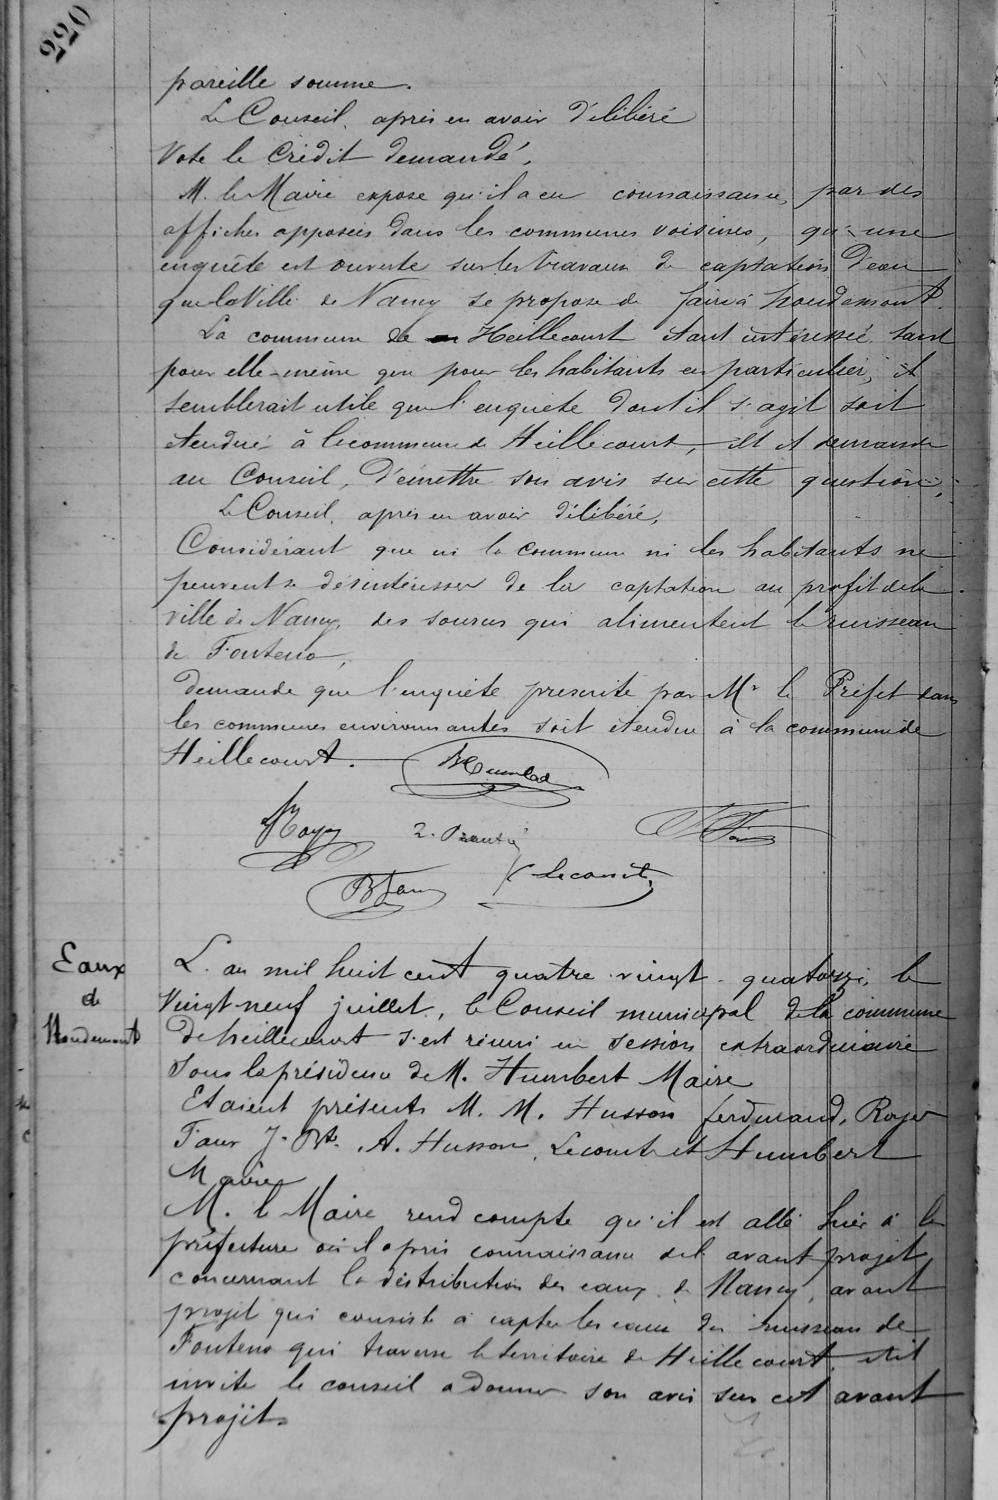 220
pareille somme.
Le Conseil, après en avoir délibéré
Vote le Crédit demandé.
M. le Maire expose qu'il a eu connaissance, par des
affiches apposées dans les communes voisines, qu'une
enquête est ouverte sur les travaux de captation d'eau
que la Ville de Nancy se propose de faire à houdemont.
La commune de Heillecourt étant intéressée tant
pour elle-même que pour les habitants en particulier, il
semblerait utile que l'enquête dont il s'agit soit
étendue à la commune de Heillecourt, et il demande
au Conseil, d'émettre son avis sur cette question.
Le Conseil, après en avoir délibéré,
Considérant que ni la commune ni les habitants ne
peuvent se désintéresser de la captation au profit de la
ville de Nancy, des sources qui alimentent le ruisseau
de Fonteno,
demande que l'enquête prescrite par Mr le Préfet dans
les communes environnantes soit étendue à la commune de
Heillecourt. Humbert
Royer
Lecomte
Eaux
de
Houdemont
L'an mil huit cent quatre-vingt-quatorze, le
Vingt-neuf juillet, le Conseil municipal de la commune
de heillecourt s'est réuni en session extraordinaire
sous la présidence de M. Humbert Maire
Etaient présents M. M. Husson ferdinand, Royer
Faux J. Bte, A. Husson, Lecomte et Humbert
Maire
M. le Maire rend compte qu'il est allé hier à la
préfecture où il a pris connaissance de l'avant projet
concernant la distribution des eaux de Nancy, avant
projet qui consiste à capter les eaux du ruisseau de
Fonteno qui traverse le territoire de Heillecourt, et il
invite le conseil à donner son avis sur cet avant
projet.